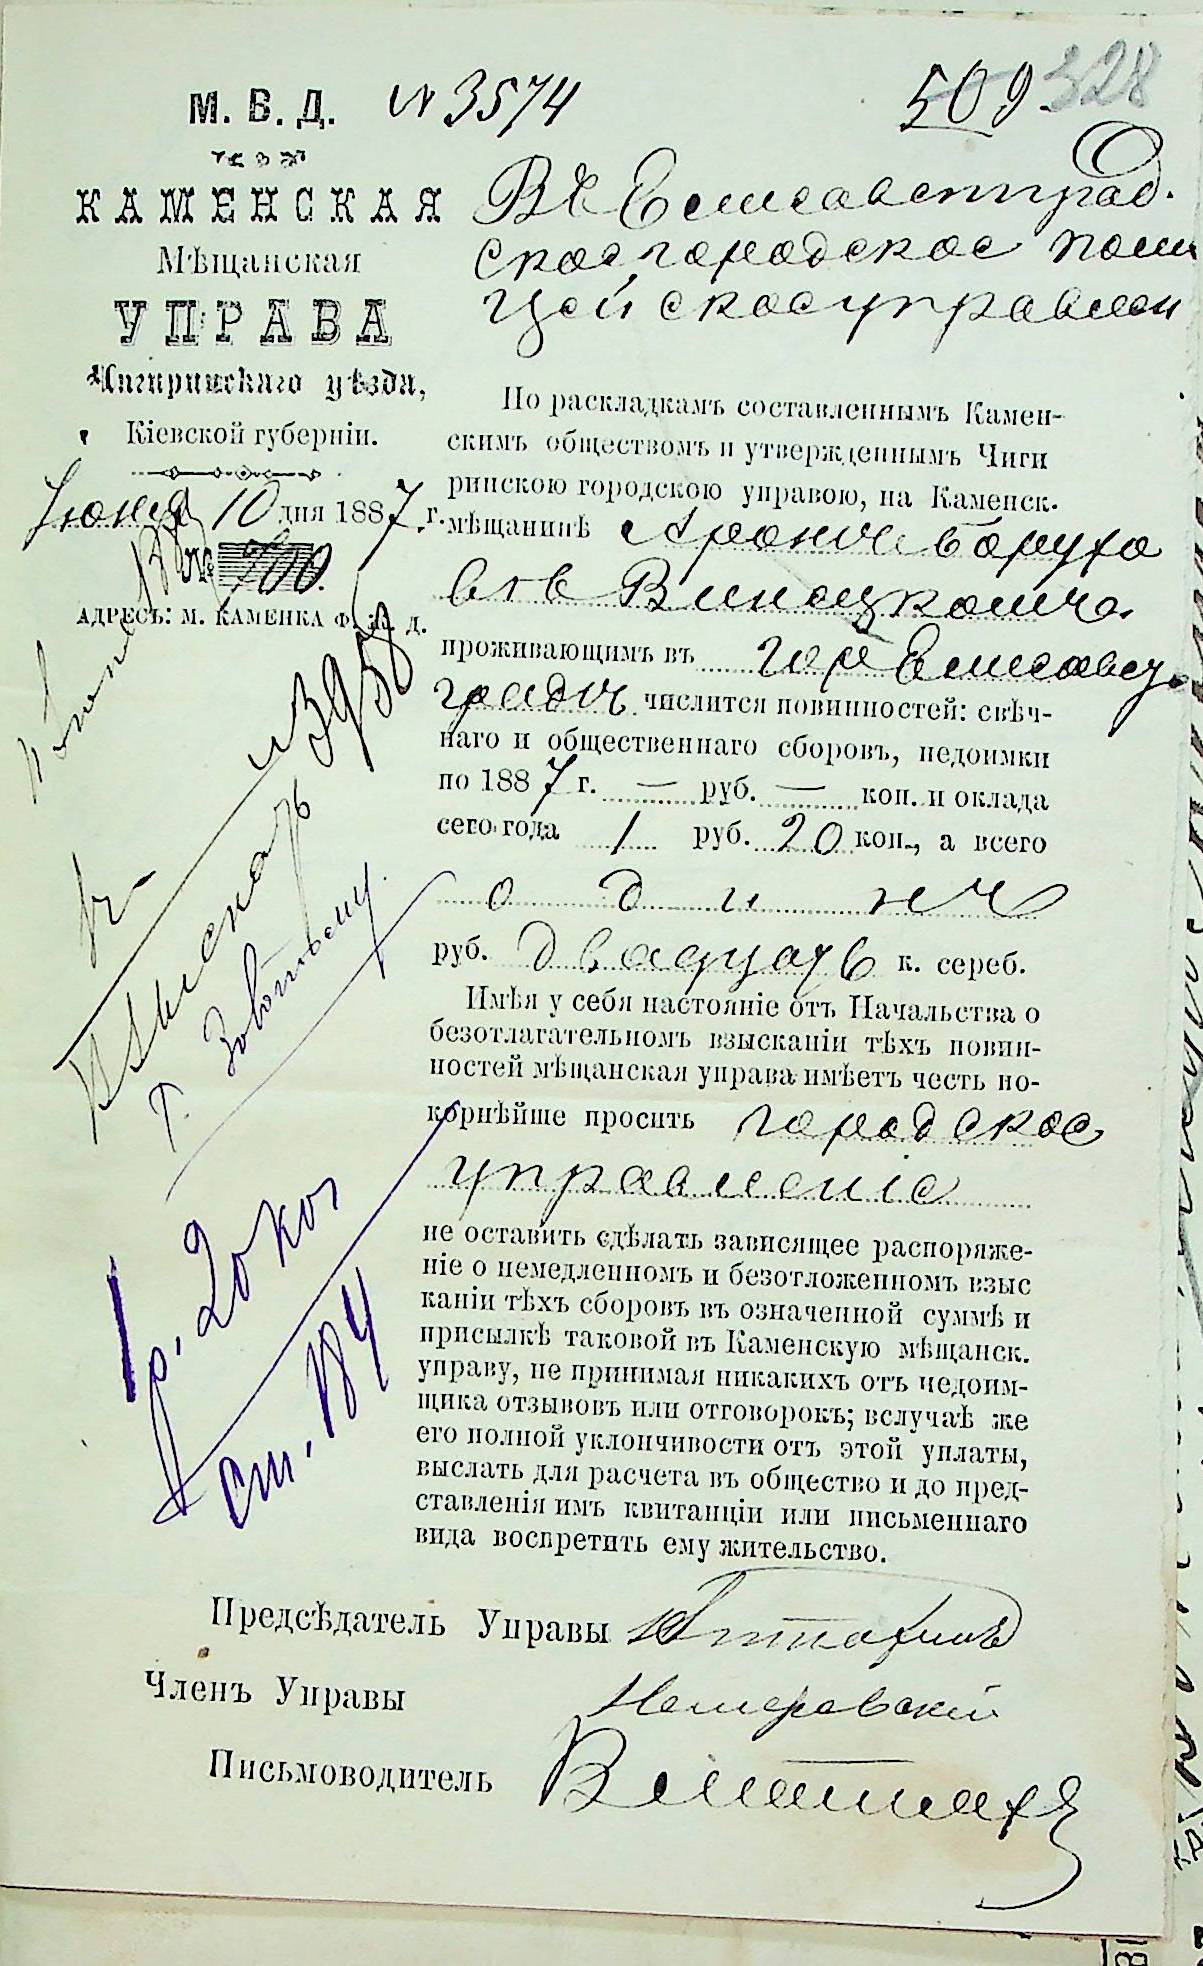 М. В. Д. № 3574
509 328
КАМЕНСКАЯ
Мѣщанская
УПРАВА
Чигиринскаго уѣзда,
Кіевской губерніи.
Іюня 10 дня 1887 г.
№ 700.
АДРЕСЪ: М. КАМЕНКА Ф. Ж. Д.
Въ Елисаветград-
ское городское поли
цейское управлен
По раскладкамъ составленнымъ Камен-
скимъ обществомъ и утвержденнымъ Чиги
ринскою городскою управою, на Каменск.
мѣщанинѣ Аронѣ Борухо
вѣ
проживающимъ въ гор Елисавет
градѣ числится повинностей: свѣч-
наго и общественнаго сборовъ, недоимки
по 1887 г. — руб. — коп. и оклада
сего года 1 руб. 20 коп., а всего
одинъ
руб. двадцать к. сереб.
Имѣя у себя настояніе отъ Начальства о
безотлагательномъ взысканіи тѣхъ повин-
ностей мѣщанская управа имѣетъ честь по-
корнѣйше просить городское
управленіе
не оставить сдѣлать зависящее распоряже-
ніе о немедленномъ и безотложенномъ взыс
каніи тѣхъ сборовъ въ означенной суммѣ и
присылкѣ таковой въ Каменскую мѣщанск.
управу, не принимая никакихъ отъ недоим-
щика отзывовъ или отговорокъ; вслучаѣ же
его полной уклончивости отъ этой уплаты,
выслать для расчета въ общество и до пред-
ставленія имъ квитанціи или письменнаго
вида воспретить ему жительство.
№ 3958
Взыскать
Г.
1 р. 20 коп
ст. 184
Предсѣдатель Управы
Членъ Управы
Письмоводитель